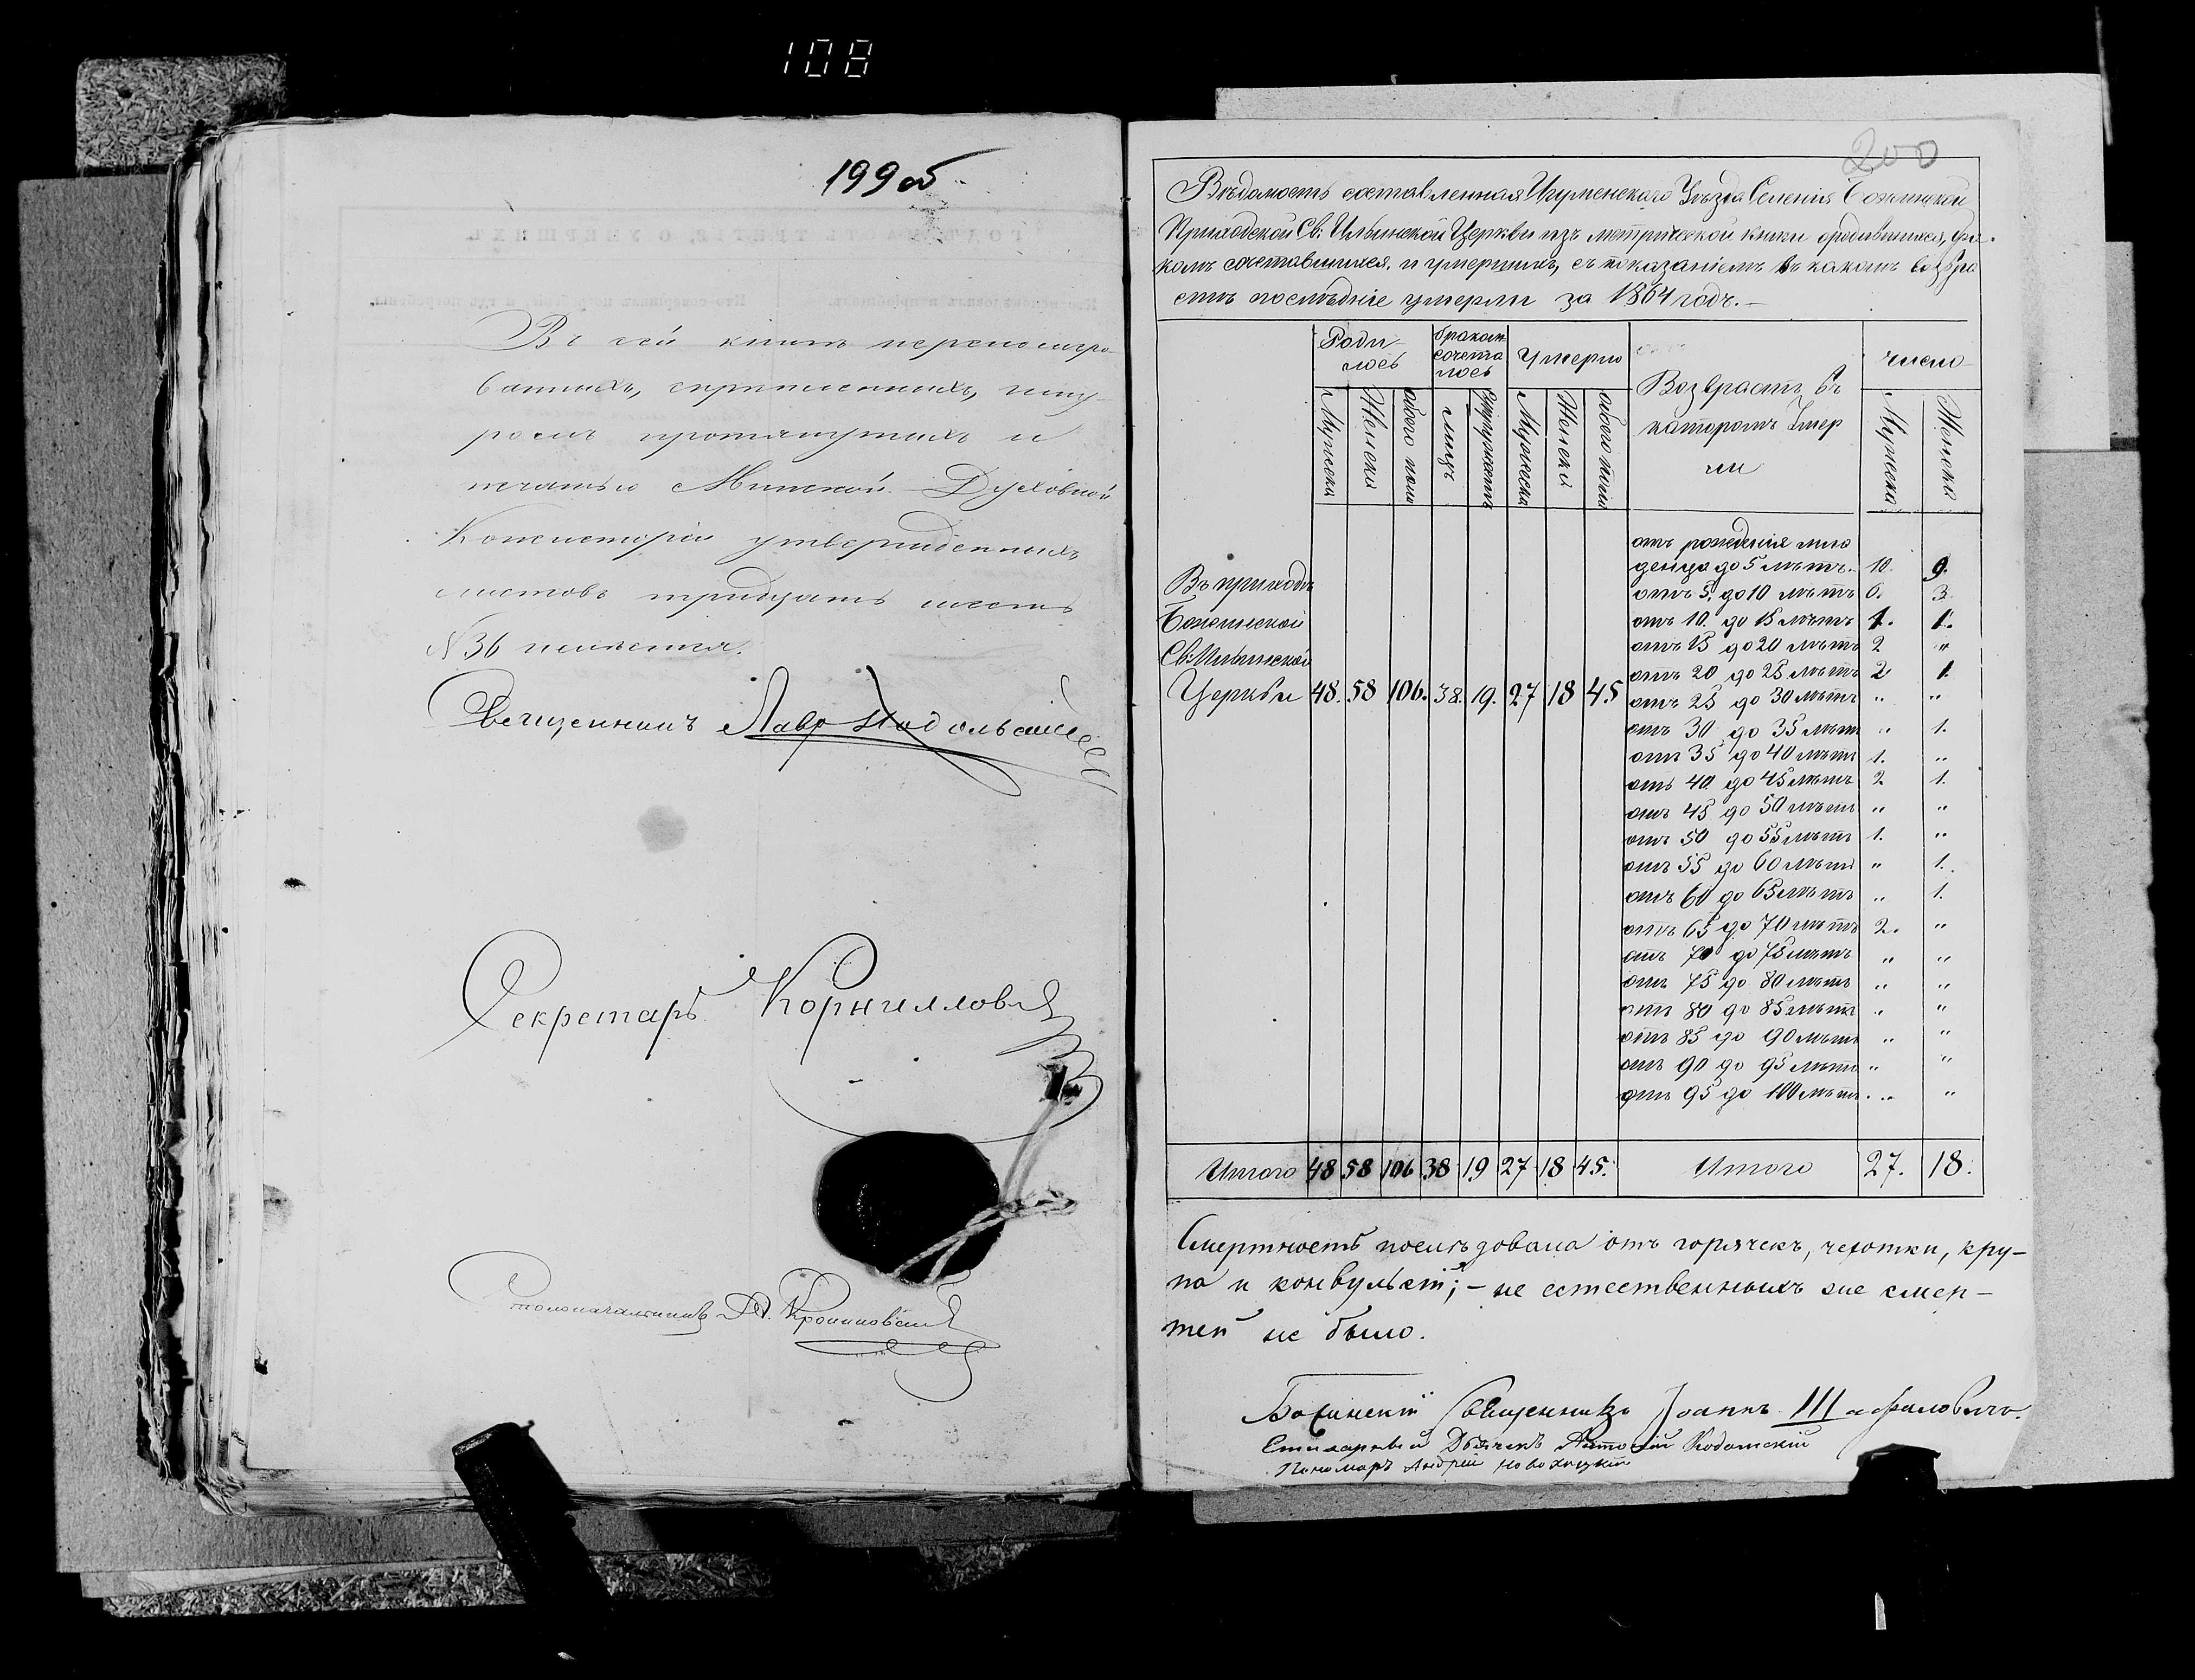 108
199 об
Въ сей книгѣ переномеро-
ванныхъ, скрѣпленныхъ, шну-
ромъ протянутыхъ и
печатью Минской Духовной
Консисторіи утвержденныхъ
листовъ тридцать шесть
№ 36 имѣется.
Священникъ Лавр Подольскій
Секретарь Корниллов
Столоначальникъ
200
Вѣдомость составленная Игуменскаго Уѣзда Селенія Божинской
Приходской Св: Ильинской Церкви изъ метрической книги о родившихся, бра-
комъ сочетавшихся, и умершихъ, съ показаніемъ въ какомъ возвра
стѣ послѣдніе умерли за 1864 годъ.—
Роди-
лось
бракомъ
сочета
лось
Умерло
Возврастъ, въ
каторомъ Умер
ли
число
Мужеска
Женска
обоего пола
лицъ
Супружествъ
Мужеска
Женска
обоего пола
Мужеска
Женска
отъ рожденія мла
денца до 5 лѣтъ. 10. 9.
отъ 5. до 10 лѣтъ 6. 3.
отъ 10. до 15 лѣтъ 1. 1.
отъ 15 до 20 лѣтъ 2 "
отъ 20 до 25 лѣтъ 2 1.
отъ 25 до 30 лѣтъ " "
отъ 30 до 35 лѣтъ " 1.
отъ 35 до 40 лѣтъ 1. "
отъ 40 до 45 лѣтъ 2 1.
отъ 45 до 50 лѣтъ " "
отъ 50 до 55 лѣтъ 1. "
отъ 55 до 60 лѣтъ " 1.
отъ 60 до 65 лѣтъ " 1.
отъ 65 до 70 лѣтъ 2. "
отъ 70 до 75 лѣтъ " "
отъ 75 до 80 лѣтъ " "
отъ 80 до 85 лѣтъ " "
отъ 85 до 90 лѣтъ " "
отъ 90 до 95 лѣтъ " "
отъ 95 до 100 лѣтъ " "
Въ приходѣ
Божинской
Св: Ильинской
Церкви 48. 58 106. 38. 19. 27 18 45
Итого 48 58 106 38 19 27 18 45. Итого 27. 18.
Смертность послѣдовала отъ горячекъ, чехотки, кру-
па и конвульсій; – не естественныхъ же смер-
тей не было.
Божинскій Священникъ Іоаннъ Шафаловичъ.
Стихарный Дьячекъ Антоній
Пономарь Андрей Новохацкій